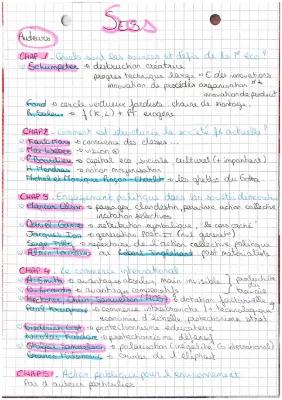 SES
Auteurs
CHAP. 1 Quels sont les sources et défis de la
Schumpeter → destruction créatrice
progrès technique large → des innovations
innovation de procédés organisation
innovation de produit
Ford → cercle vertueux fordiste chaine de montage
R. Solow → f(K, L) + PT exogène
CHAP 2 - Comment est structurée la société française actuelle?
Karl Marx → conscience des classes ...
Max Weber → vision
P. Bourdieu → capital éco sociale culturel (+ important)
H. Mendras → notion moyennisation
Michel et Monique Pinçon-Charlot → les ghettos du Gotha
CHAP 3 - Engagement politique dans les sociétés
Mancur Olson → passager clandestin paradoxe action collective
incitation sélectives
Daniel Gaxie → rétribution symbolique
Jacques Ion →
→ répertoire de l'action collective politique
Alain Touraine ou Ronald Inglehart post matérialistes
CHAP 4 - Le commerce international
A. Smith → avantage absolu main invisible
D. Ricardo → avantage comparatifs
→ dotation factorielle
Paul Krugman → commerce intrabranche + technologique
économie d'échelle protectionnisme strat
→ protectionnisme éducateur
→ protectionnisme défensif
→ polarisation (inégalité internationale)
→ courbe de l'éléphant
CHAP 5 - Action publique pour l'environnement
Pas d'auteur particulier